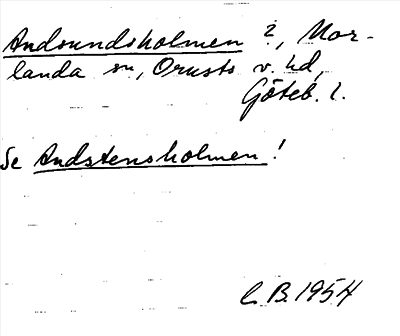 Andsundsholmen 2, Mor-
landa sn, Orusts v. hd,
Göteb. l.
Se Andstensholmen!
C. B. 1954